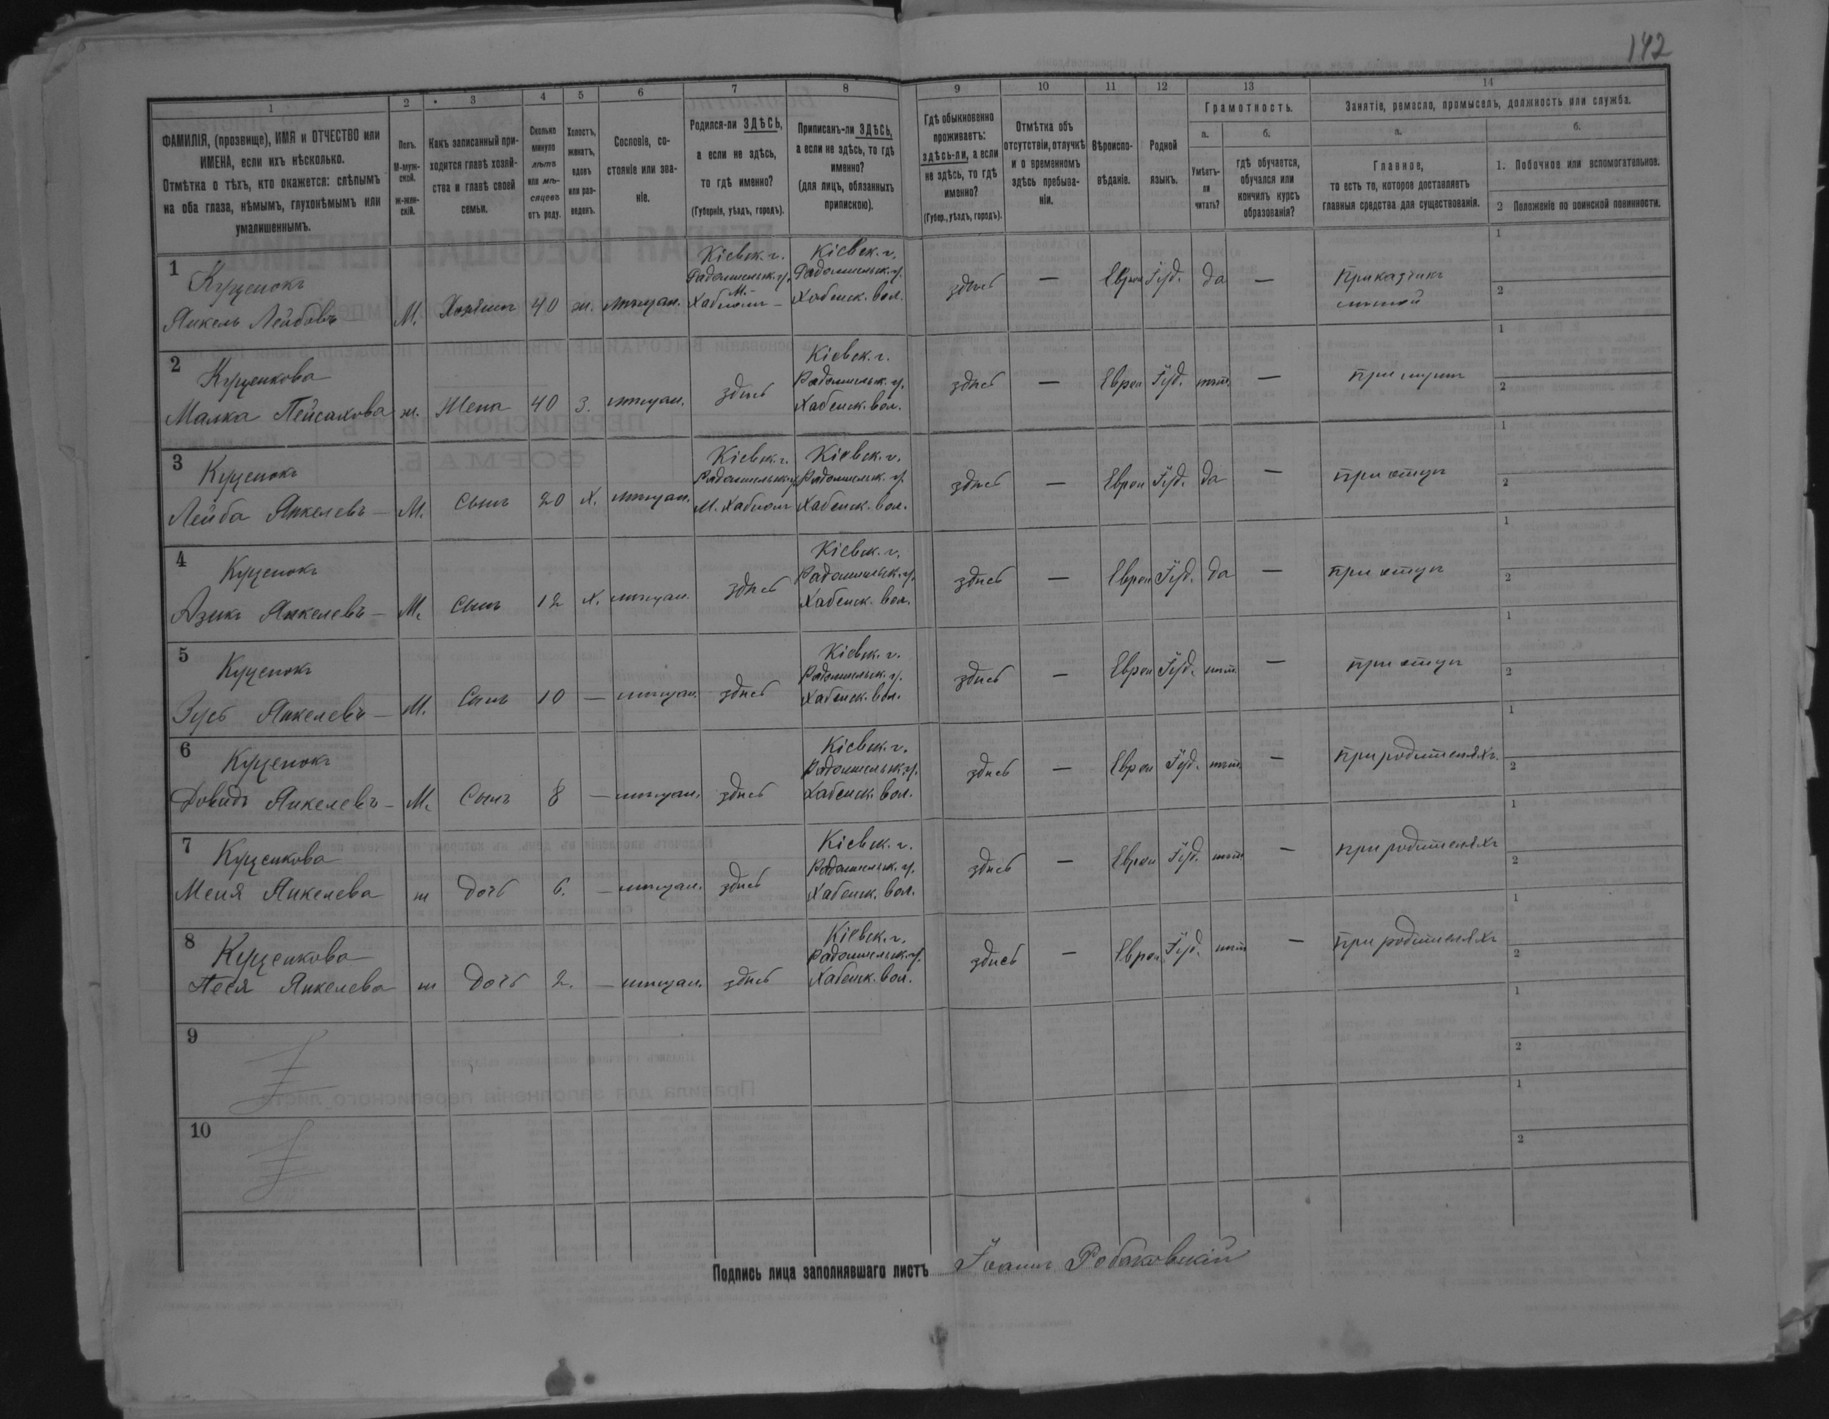 142
1 2 3 4 5 6 7 8 9 10 11 12 13 14
ФАМИЛІЯ, (прозвище), ИМЯ и ОТЧЕСТВО или
ИМЕНА, если ихъ нѣсколько.
Отмѣтка о тѣхъ, кто окажется: слѣпымъ
на оба глаза, нѣмымъ, глухонѣмымъ или
умалишеннымъ.
Полъ.
М-муж-
ской.
ж-жен-
скій.
Какъ записанный при-
ходится главѣ хозяй-
ства и главѣ своей
семьи.
Сколько
минуло
лѣтъ
или мѣ-
сяцевъ
отъ роду.
Холостъ,
женатъ,
вдовъ
или раз-
веденъ.
Сословіе, со-
стояніе или зва-
ніе.
Родился-ли ЗДѢСЬ,
а если не здѣсь,
то гдѣ именно?
(Губернія, уѣздъ, городъ).
Приписанъ-ли ЗДѢСЬ,
а если не здѣсь, то гдѣ
именно?
(для лицъ, обязанныхъ
припискою).
Гдѣ обыкновенно
проживаетъ:
здѣсь-ли, а если
не здѣсь, то гдѣ
именно?
(Губер., уѣздъ, городъ).
Отмѣтка объ
отсутствіи, отлучкѣ
и о временномъ
здѣсь пребыва-
ніи.
Вѣроиспо-
вѣданіе.
Родной
языкъ.
Грамотность.
а.
Умѣетъ-
ли
читать?
б.
гдѣ обучается,
обучался или
кончилъ курсъ
образованія?
Занятіе, ремесло, промыселъ, должность или служба.
а.
Главное,
то есть то, которое доставляетъ
главныя средства для существованія.
б.
1. Побочное или вспомогательное.
2 Положеніе по воинской повинности.
1
Куценокъ
Янкель Лейбовъ М. Хозяинъ 40 ж. мѣщан.
Кіевск. г.
Радомысльск. у.
М.
Хабное
Кіевск. г.
Радомысльск. у.
Хабенск. вол.
здѣсь — Еврей Іуд. да —
Приказчикъ
лѣсной
1
2
2
Куценкова
Малка Пейсахова ж. Жена 40 З. мѣщан. здѣсь
Кіевск. г.
Радомысльск. у.
Хабенск. вол.
здѣсь — Еврей Іуд. нѣтъ — при мужѣ
1
2
3
Куценокъ
Лейба Янкелевъ — М. Сынъ 20 Х. мѣщан.
Кіевск. г.
Радомысльск. у.
М. Хабное
Кіевск. г.
Радомысльск. у.
Хабенск. вол.
здѣсь — Еврей Іуд. да — при отцѣ
1
2
4
Куценокъ
Азикъ Янкелевъ — М. Сынъ 12 Х. мѣщан. здѣсь
Кіевск. г.
Радомысльск. у.
Хабенск. вол.
здѣсь — Еврей Іуд. да — при отцѣ
1
2
5
Куценокъ
Зусь Янкелевъ — М. Сынъ 10 — мѣщан. здѣсь
Кіевск. г.
Радомысльск. у.
Хабенск. вол.
здѣсь — Еврей Іуд. нѣтъ — при отцѣ
1
2
6
Куценокъ
Довидъ Янкелевъ — М. Сынъ 8 — мѣщан. здѣсь
Кіевск. г.
Радомысльск. у.
Хабенск. вол.
здѣсь — Еврей Іуд. нѣтъ — при родителяхъ
1
2
7
Куценкова
Меня Янкелева ж Дочь 6. — мѣщан. здѣсь
Кіевск. г.
Радомысльск. у.
Хабенск. вол.
здѣсь — Еврей Іуд. нѣтъ — при родителяхъ
1
2
8
Куценкова
Песя Янкелева ж Дочь 2. — мѣщан. здѣсь
Кіевск. г.
Радомысльск. у.
Хабенск. вол.
здѣсь — Еврей Іуд. нѣтъ — при родителяхъ
1
2
9
1
2
10
1
2
Подпись лица заполнявшаго листъ Іоаннъ Робаковскій